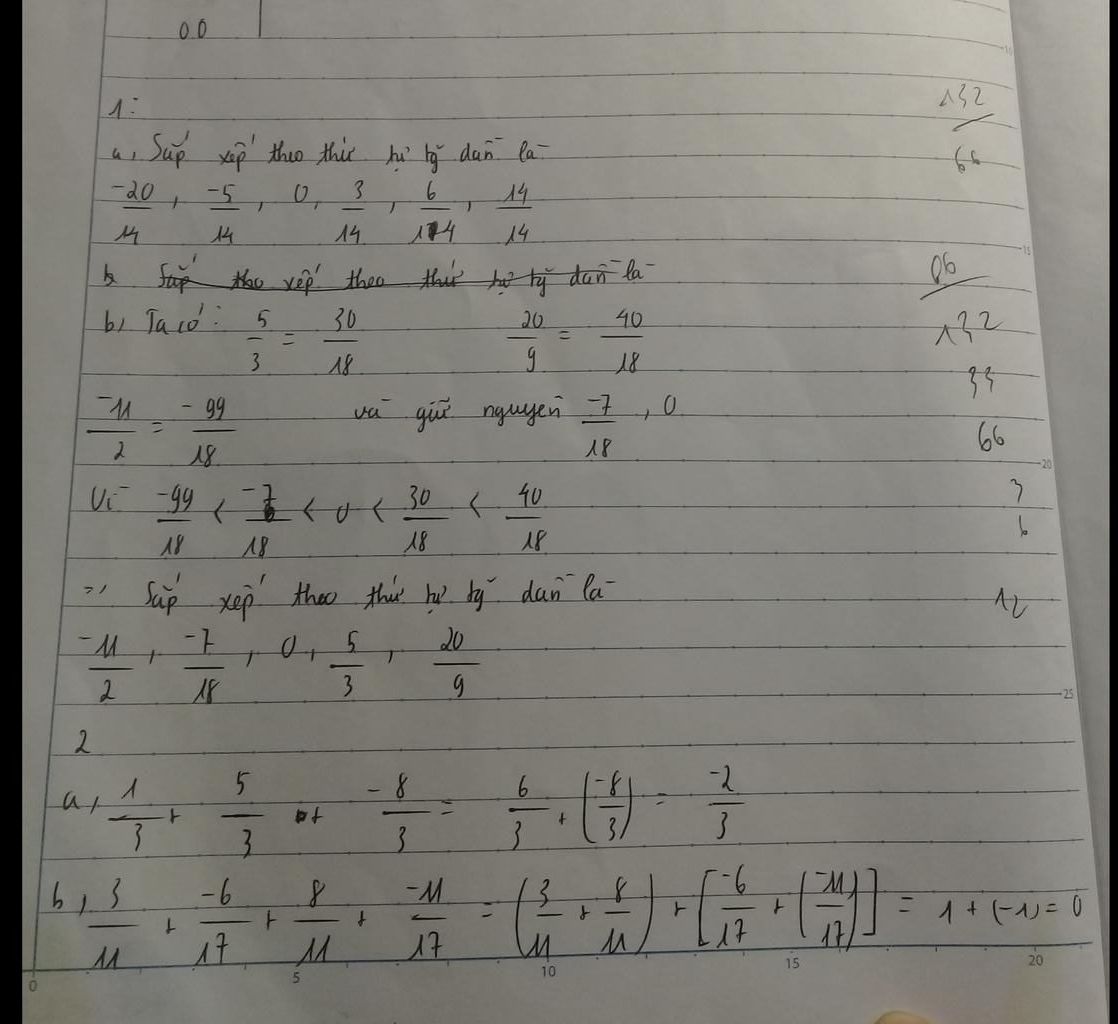 00
1:
132
a, Sắp xếp theo thứ tự tỹ dần là
66
-20/14, -5/14, 0, 3/14, 6/14, 14/14
b Sắp theo xếp theo thứ tự tỹ dần là
06
b, Ta có: 5/3 = 30/18 20/9 = 40/18
132
33
-11/2 = -99/18 và giữ nguyên -7/18, 0
66
Vì -99/18 < -7/18 < 0 < 30/18 < 40/18
3
6
=> Sắp xếp theo thứ tự tỹ dần là
12
-11/2, -7/18, 0, 5/3, 20/9
2
a, 1/3 + 5/3 + -8/3 = 6/3 + (-8/3) = -2/3
b, 3/11 + -6/17 + 8/11 + -11/17 = (3/11 + 8/11) + [-6/17 + (-11/17)] = 1 + (-1) = 0
10
15
20
25
0 5 10 15 20